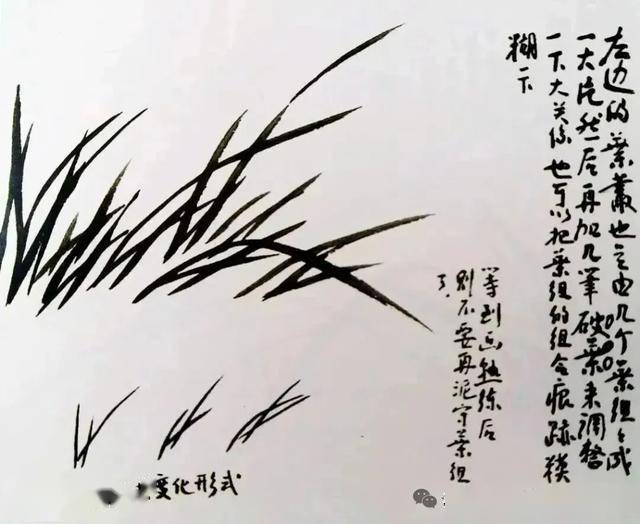 左边的葉叢也是由几个葉组〻成
一大片然后再加几筆破葉来调整
一下大关係也可以把葉组的组合痕跡模
糊一下
等到画熟练后
则不要再泥守葉组
了.
变化形式